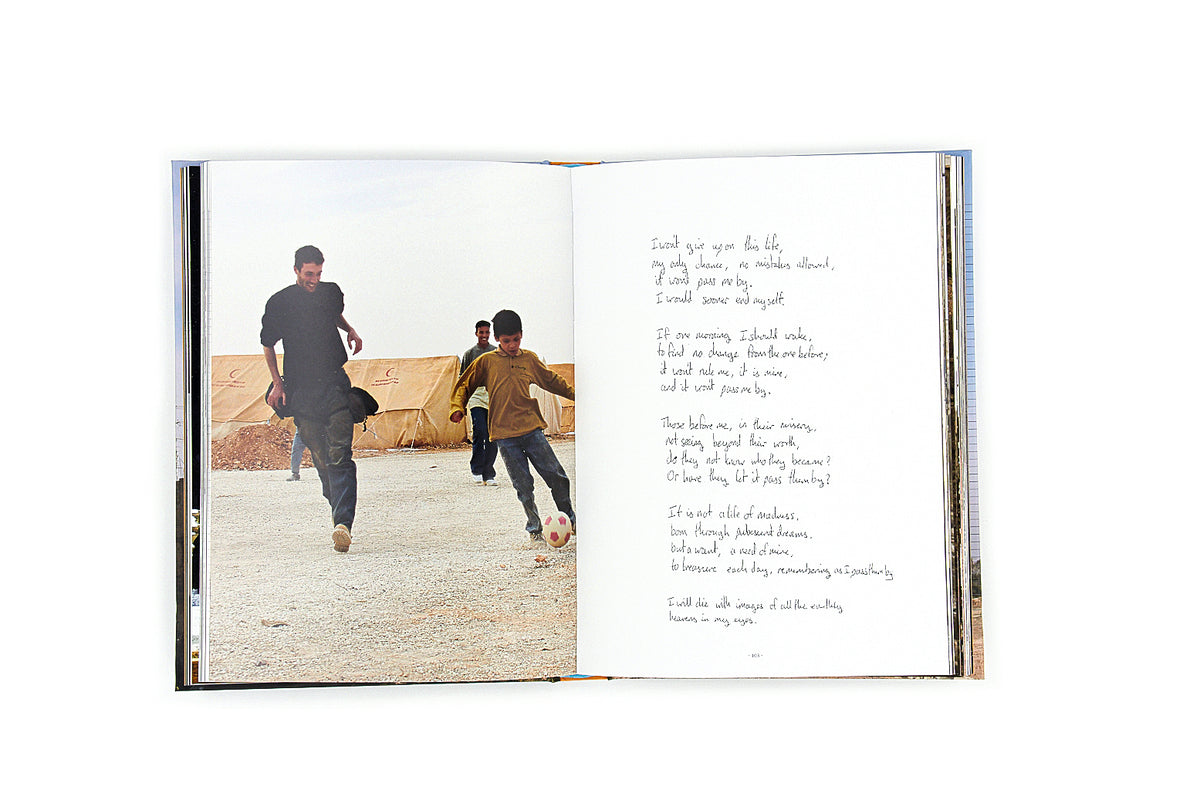 I won't give up on this life,
my only chance, no mistakes allowed,
it won't pass me by.
I would sooner end myself.
If one morning I should wake,
to find no change from the one before;
it won't rule me, it is mine,
and it won't pass me by.
Those before me, in their misery,
not seeing beyond their worth,
do they not know who they became?
Or have they let it pass them by?
It is not a life of madness,
born through pubescent dreams.
but a want, a need of mine,
to treasure each day, remembering as I pass them by
I will die with images of all the earthly
heavens in my eyes.